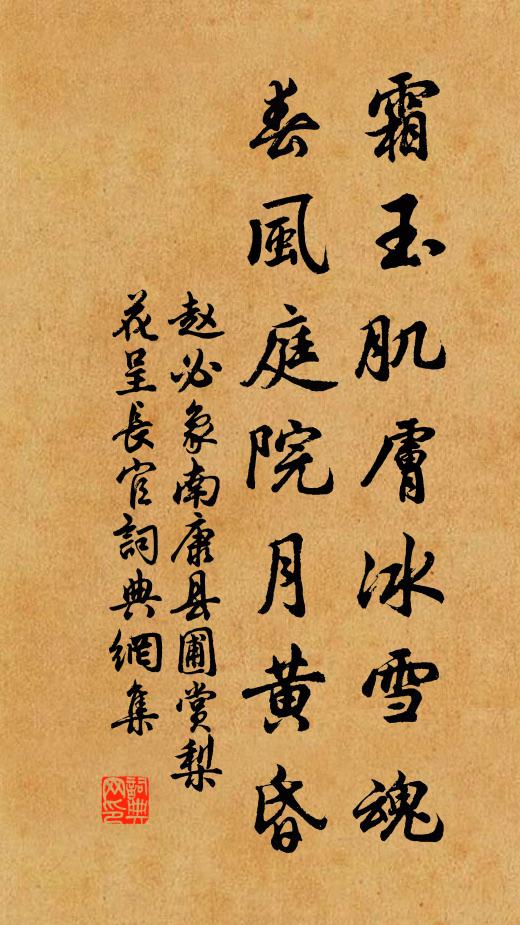 霜玉肌膚冰雪魂
春風庭院月黄昏
赵必象南康县圃賞梨
花呈長官詞典網集
詞典
网印